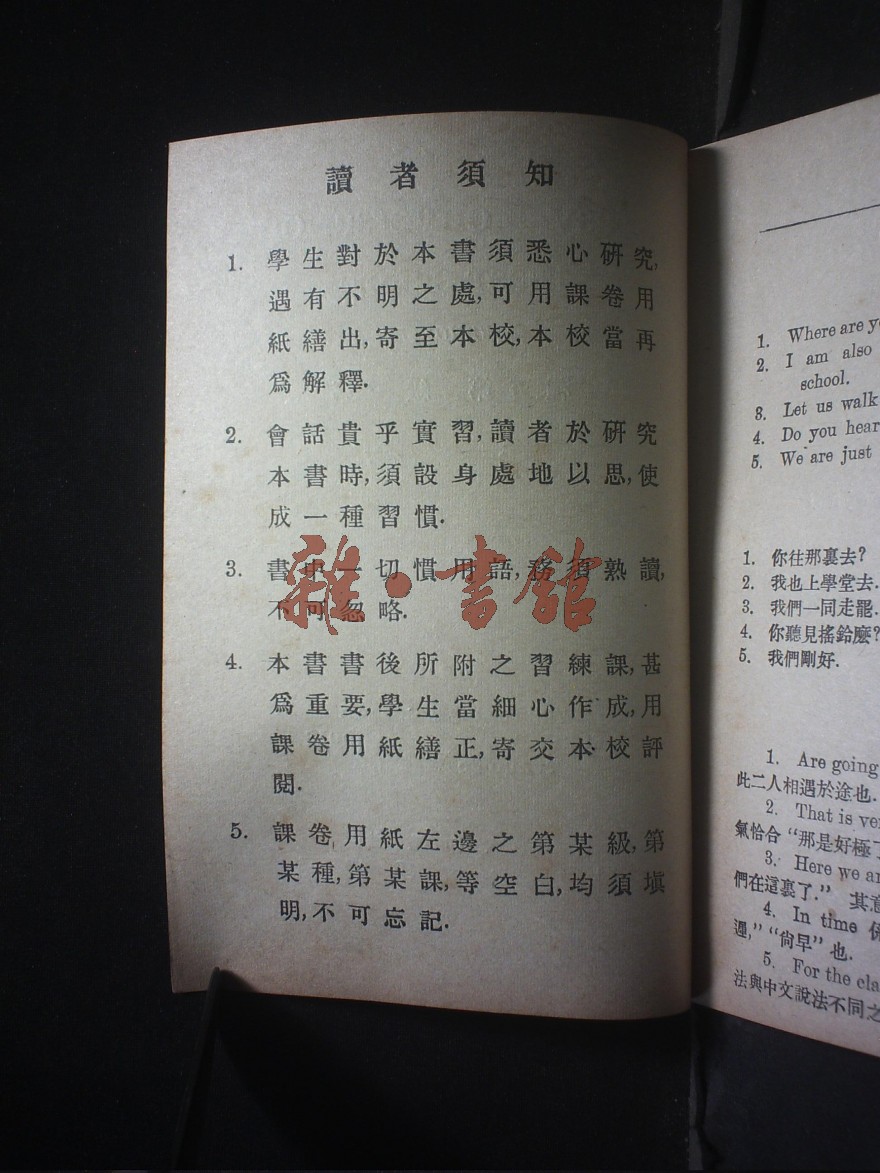 讀者須知
1. 學生對於本書須悉心研究,
遇有不明之處,可用課卷用
紙繕出,寄至本校,本校當再
爲解釋.
2. 會話貴乎實習,讀者於研究
本書時,須設身處地以思,使
成一種習慣.
3. 書中一切慣用語,務須熟讀,
不可忽略.
4. 本書書後所附之習練課,甚
爲重要,學生當細心作成,用
課卷用紙繕正,寄交本校評
閱.
5. 課卷用紙左邊之第某級,第
某種,第某課,等空白,均須塡
明,不可忘記.
雜·書館
1. Where are
2. I am also
school.
3. Let us walk
4. Do you hear
5. We are just
1. 你往那裏去?
2. 我也上學堂去.
3. 我們一同走罷.
4. 你聽見搖鈴麽?
5. 我們剛好.
1. Are going
此二人相遇於途也.
2. That is
氣恰合“那是好極了
3. Here we
們在這裏了.” 其意
4. In time 係
遲,”“尙早”也.
5. For the
法與中文說法不同之